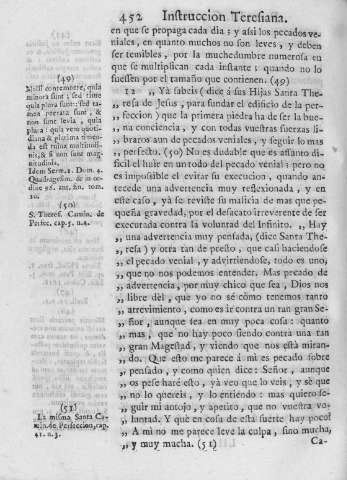 452 Instruccion Teresiana.
en que se propaga cada dia; y asi los pecados ve-
niales, en quanto muchos no son leves, y deben
ser temibles, por la muchedumbre numerosa en
que se multiplican cada instante: quando no lo
fuessen por el tamaño que contienen. (49)
12 ,, Yà sabeis (dice à sus Hijas Santa The-
,, resa de Jesus, para fundar el edificio de la per-
,, feccion) que la primera piedra ha de ser la bue-
,, na conciencia, y con todas vuestras fuerzas li-
,, braros aun de pecados veniales, y seguir lo mas
,, perfecto. (50) No es dudable que es assunto di-
ficil el huir en un todo del pecado venial: pero no
es impossible el evitar su execucion, quando an-
tecede una advertencia muy reflexionada, y en
este caso, yà se reviste su malicia de mas que pe-
queña gravedad, por el desacato irreverente de ser
executada contra la voluntad del Infinito. ,, Hay
,, una advertencia muy pensada, (dice Santa The-
,, resa) y otra tan de presto, que casi haciendose
,, el pecado venial, y advirtiendose, todo es uno,
,, que no nos podemos entender. Mas pecado de
,, advertencia, por muy chico que sea, Dios nos
,, libre dèl, que yo no sè còmo tenemos tanto
,, atrevimiento, como es ir contra un tan gran Se-
,, ñor, aunque sea en muy poca cosa: quanto
,, mas, que no hay poco siendo contra una tan
,, gran Magestad, y viendo que nos està miran-
,, do. Que esto me parece à mi es pecado sobre
,, pensado, y como quien dice: Señor, aunque
,, os pese harè esto, yà veo que lo veis, y sè que
,, no lo quereis, y lo entiendo: mas quiero se-
,, guir mi antojo, y apetito, que no vuestra vo-
,, luntad. Y que en cosa de esta suerte hay poco!
,, A mi no me parece leve la culpa, sino mucha,
,, y muy mucha. (51)
Ca-
(49)
Nolli contemnere, quia
minora sunt: sed time
quia plura sunt: sed ta-
men peccata sunt, &
non sunt levia, quia
plura: quia vero quoti-
diana & plurima timen-
da est ruina multitudi-
nis, & si non sunt mag-
nitudinis.
Idem Serm. 2. Dom. 4.
Quadragesim.
(50)
S. Theres. Camin. de
Perfec. cap. 5. n. 2.
(51)
La misma Santa Ca-
min. de Perfeccion, cap.
41. n. 3.